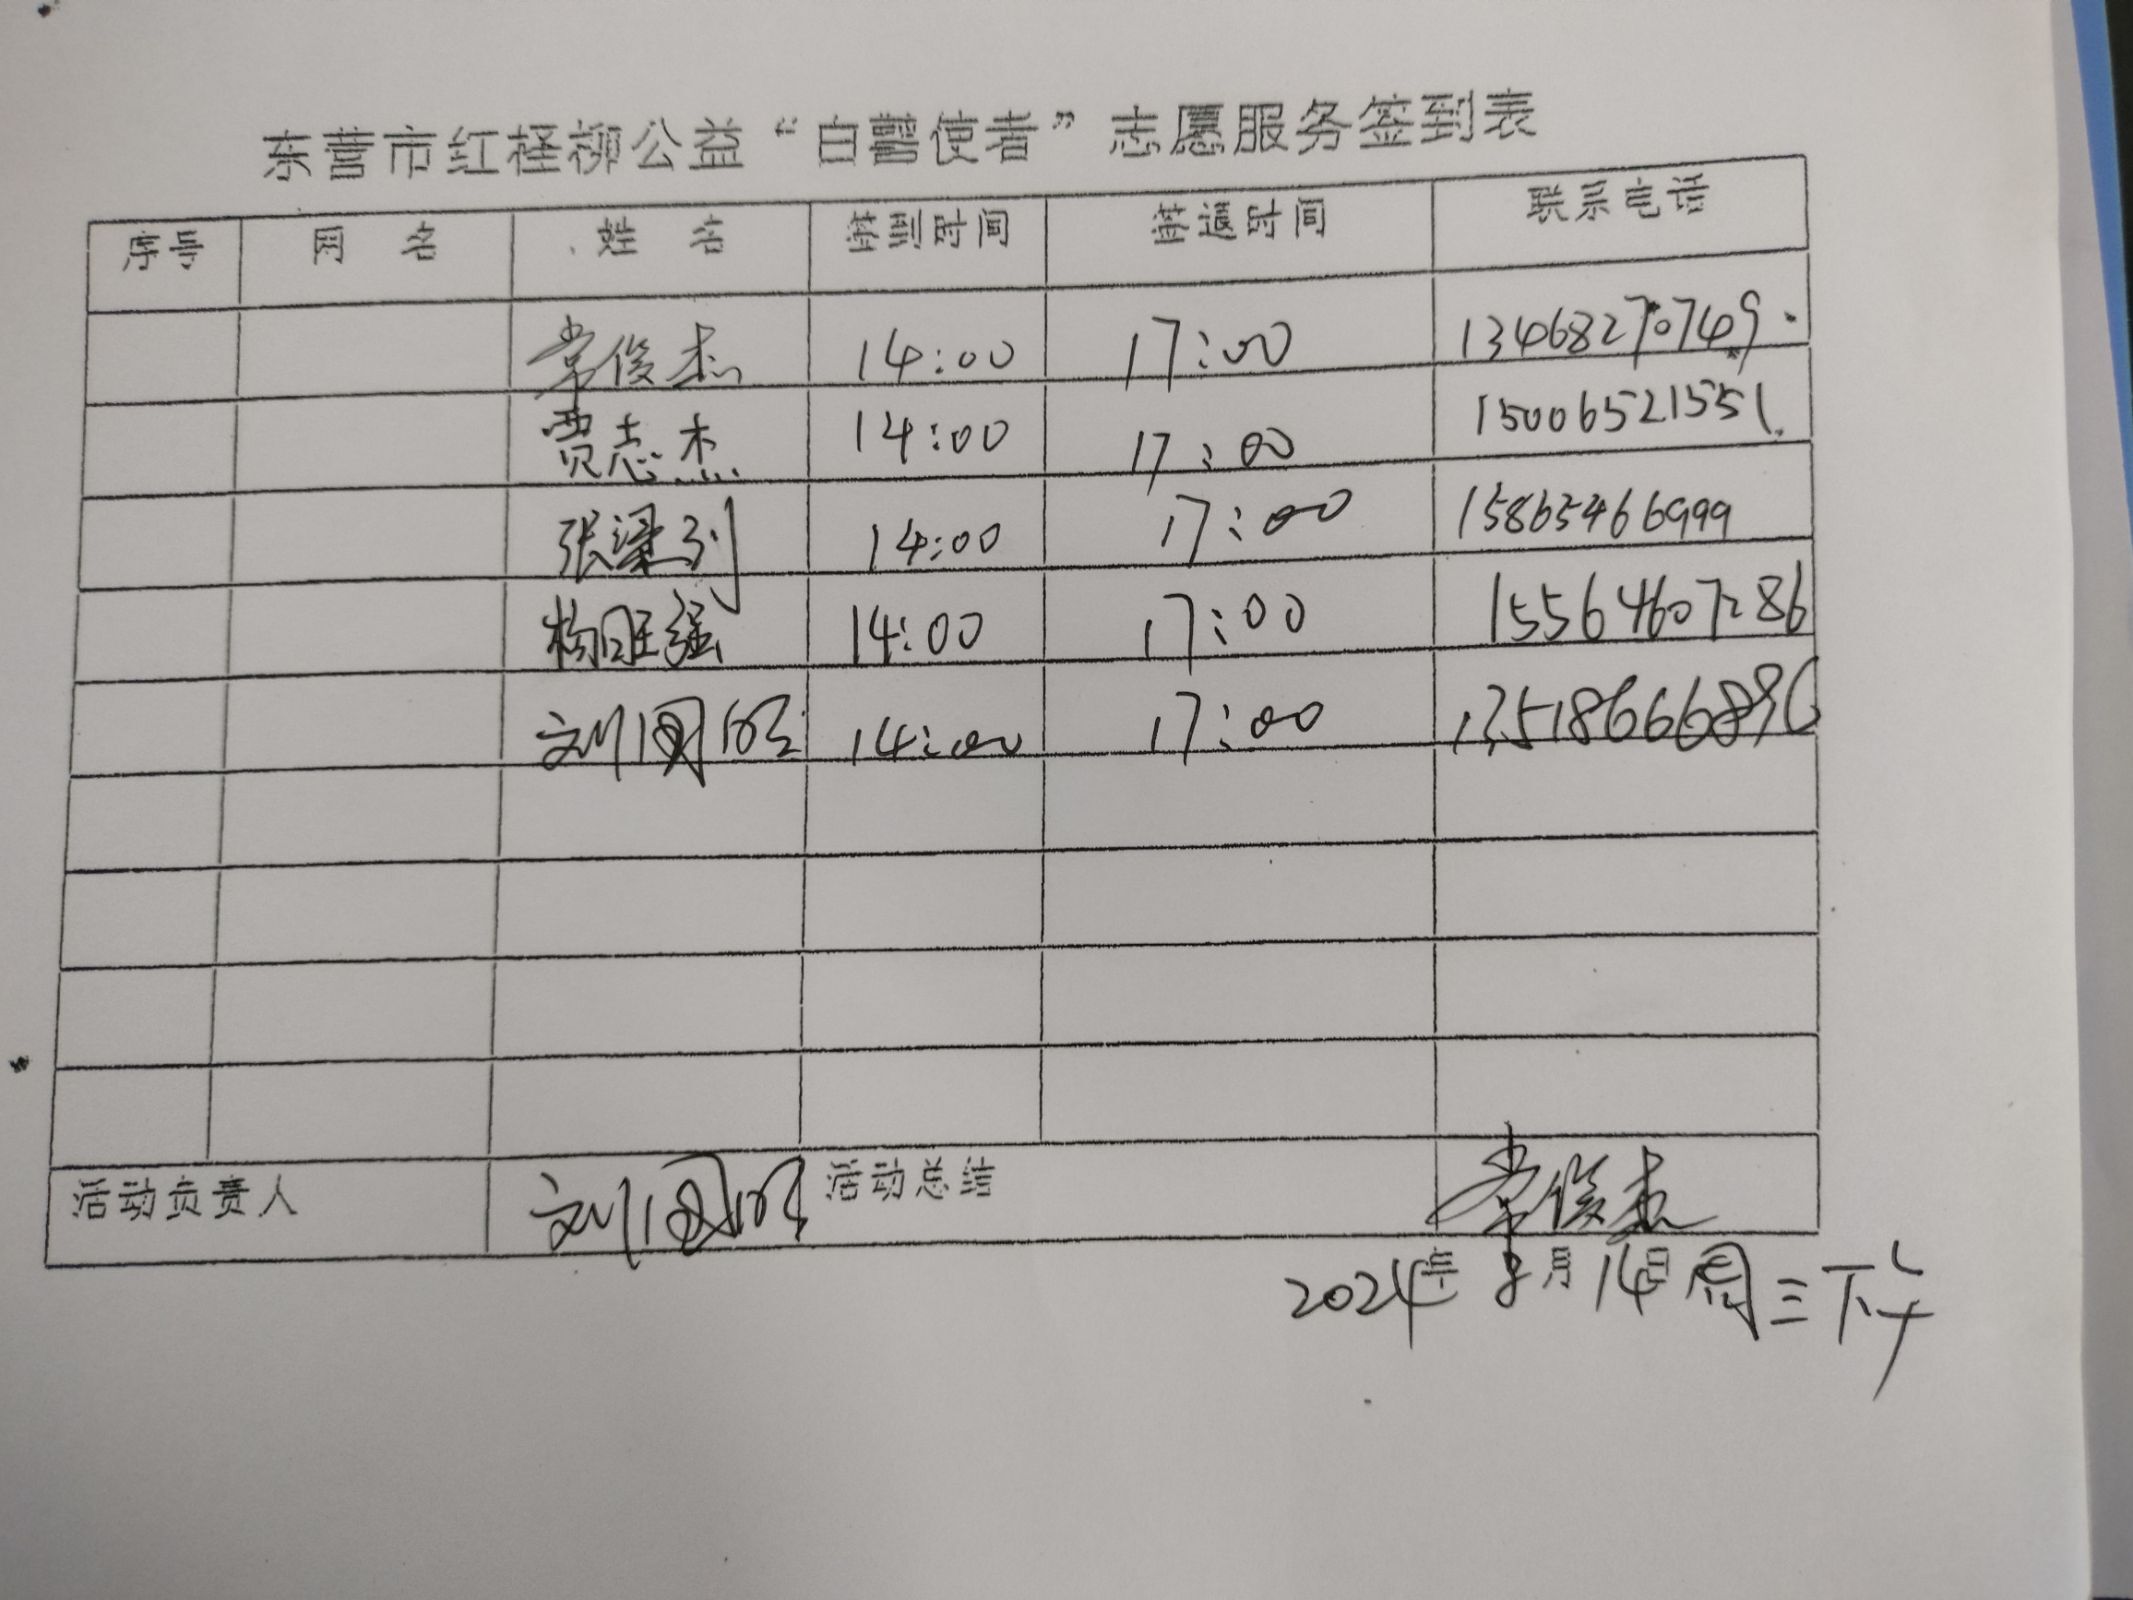 东营市红柽柳公益“白鹭使者”志愿服务签到表
序号 网 名 姓 名 签到时间 签退时间 联系电话
常俊杰 14:00 17:00 13468270749
贾志杰 14:00 17:00 15006521551
张梁刘 14:00 17:00 15865466999
杨旺强 14:00 17:00 15564607286
刘国明 14:00 17:00
活动负责人 刘国明 活动总结 常俊杰
2024年8月14日周三下午